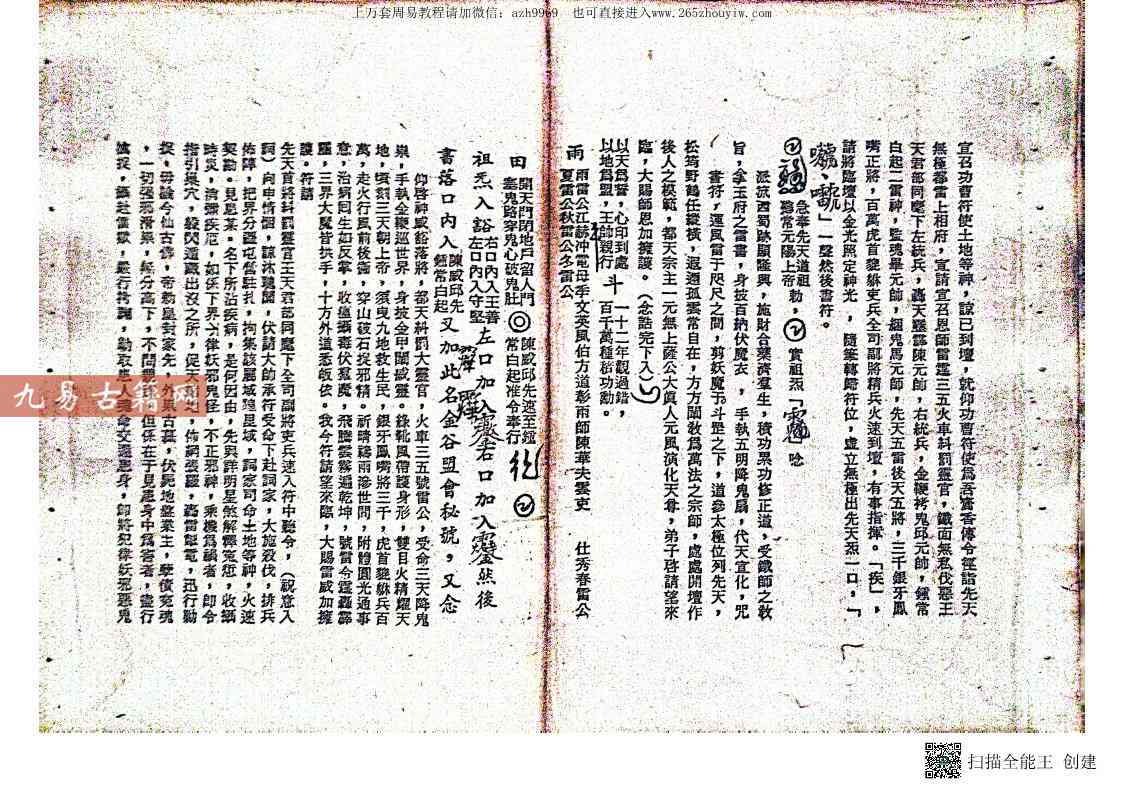 上万套周易教程请加微信：azh9969 也可直接进入www.265zhouyiw.com
宣召功曹符使土地等神，諒已到壇，就仰功曹符使爲吾賫香傳令徑詣先天
無極都雷上相府，宣請宣召恩師雷霆三五火車科罰靈官，鐵面無私伐惡王
天君部同麾下左統兵，轟天霹靂陳元帥，右統兵，金鞭拷鬼邱元帥，鍾常
白起二雷神，監魂畢元帥，絪鬼馬元帥，先天五雷後天五將，三千銀牙鳳
嘴正將，百萬虎首貔貅吏兵全司副將精兵火速到壇，有事指揮。「疾」，
請將臨壇以金光照定神光，隨筆轉歸符位，虛立無極出先天炁一口，「
」一聲然後書符。
急奉先天道祖
常元陽上帝 勅， 實祖炁「 唸
派流西蜀跡顯隆興，施財合藥濟羣生，積功累功修正道，受鐵師之敎
旨，拿玉府之雷書，身披百納伏魔衣，手執五明降鬼扇，代天宣化，咒
書符，運風雷于咫尺之間，剪妖魔于斗罡之下，道參太極位列先天，
松筠野鶴任縱橫，遐邇孤雲常自在，方方闡敎爲萬法之宗師，處處開壇作
後人之模範，都天宗主一元無上薩公大眞人元風演化天尊，弟子啓請望來
臨，大賜師恩加擁護。（念誥完下入）
以天爲誓，心印到處 一十二年觀過錯，
以地爲盟，王帥親行 斗 百千萬種積功勳。
雨 雨雷公江赫冲電母季文英風伯方道彰雨師陳華夫雲吏 仕秀春雷公
夏雷公秋雷公冬雷公
田 開天門閉地戶留人門 陳威邱先速至鎧
塞鬼路穿鬼心破鬼肚 常白起准令奉行
祖炁入谿 右口內入王善 左口加入 右口加入 然後
左口內入守堅
書落口內入 陳威邱先 又加此名金谷盟會秘號，又念
鍾常白起
仰啓神威谿落將，都天糾罰大靈官，火車三五號雷公，受命三天降鬼
祟，手執金鞭巡世界，身披金甲闡威靈。綠靴風帶護身形，雙目火睛耀天
地，頃刻三天朝上帝，須臾九地救生民，銀牙鳳嘴將三千，虎首貔貅兵百
萬，走火行風前後衛，穿山破石捉邪精。祈晴禱雨濟世間，附體圓光通事
意，治病囘生如反掌，收瘟攝毒伏羣魔，飛騰雲霧遍乾坤，號雷令霆轟霹
靂，三界大魔皆拱手，十方外道悉皈依。我今符請望來臨，大賜雷威加擁
護。符請
先天首將糾罰靈官王天君部同麾下全司副將吏兵速入符中聽令，（祝意入
詞）向申情悃，諒沐聽聞，伏請大帥承符受命下赴詞家，大施殺伐，排兵
佈陣，把界分疆屯營駐扎，拘集該屬城隍里域，詞家司命土地等神，火速
契勘。見患某。名下所沾疾病，是何因由，先與詳明星煞解釋冤愆，收攝
時炎，消彌疾厄，如係下界犯律妖邪鬼怪，不正邪神，乘機爲禍者，即令
指引巢穴，殺閃遁藏出沒之所，促天 地，佈網張羅，轟雷掣電，迅行勦
捉，毋論今仙古佛，帝勅皇封家先，外氣古墓，伏屍地 業主，孽債冤魂
，一切强邪滑祟，無分高下，不問 但係在于見患身中爲害者，盡行
擒捉，攝赴雷獄，嚴行拷鞫，勒取 命交還患身，卽將犯律妖邪惡鬼
九易古籍网
扫描全能王 创建